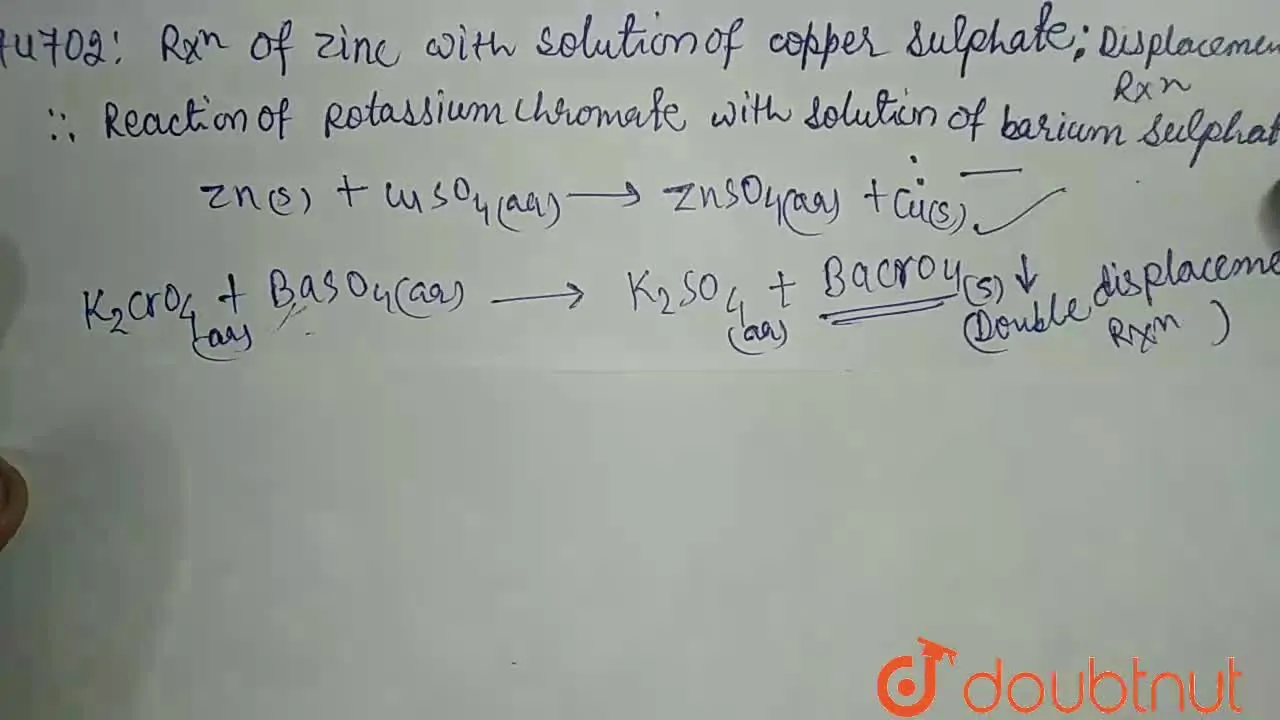 14702: Rxn of zinc with solution of copper sulphate; Displacemen
Rxn
∴ Reaction of Potassium chromate with solution of barium sulphat
Zn(s) + CuSO4(aq) → ZnSO4(aq) + Cu(s)
K2CrO4(aq) + BaSO4(aq) → K2SO4(aq) + BaCrO4(s)↓
(Double displaceme
Rxn )
doubtnut